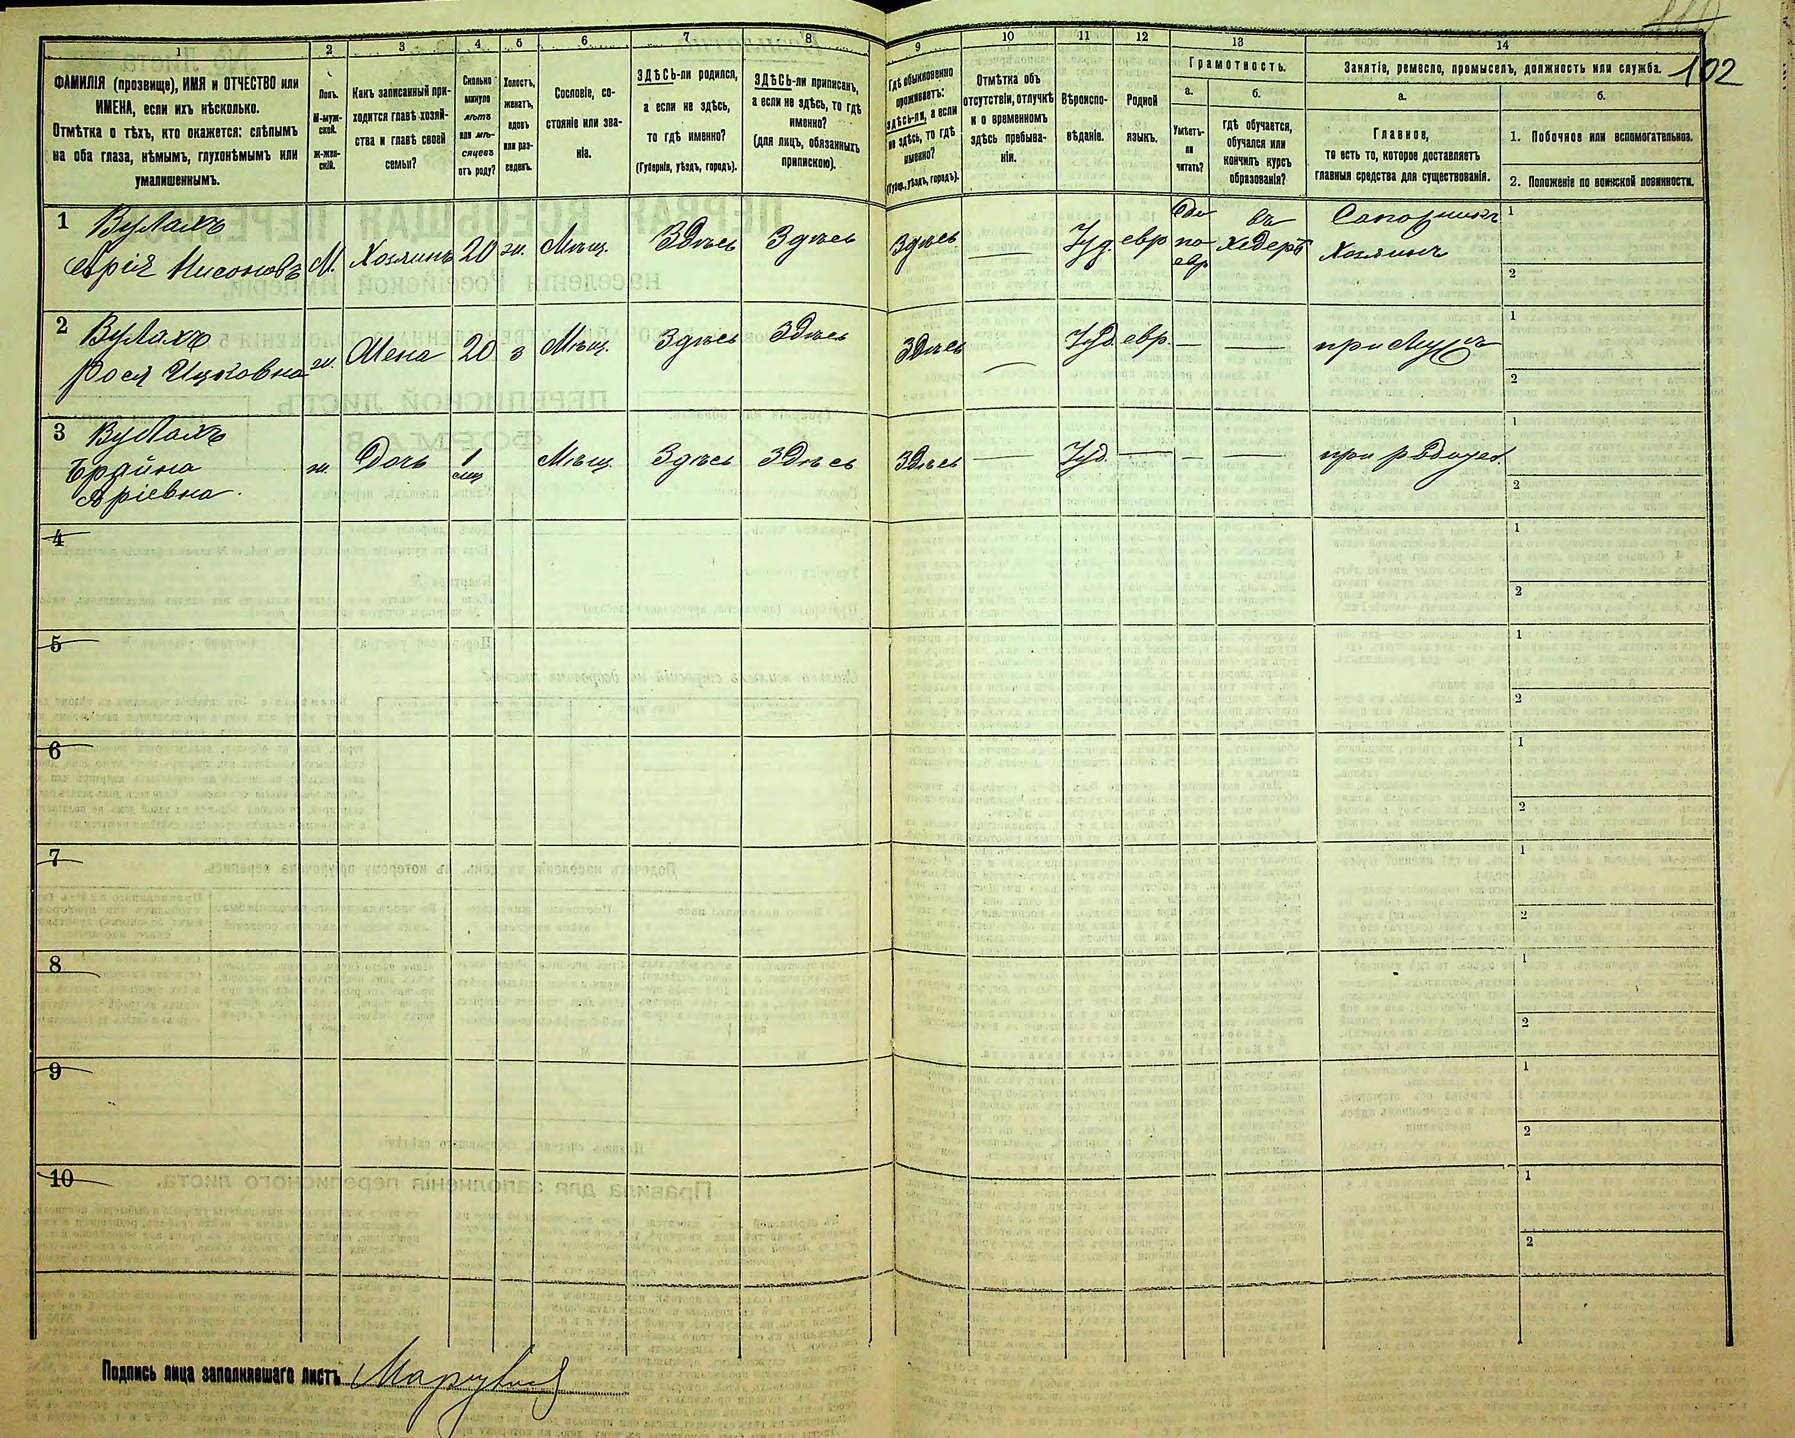 102
1 2 3 4 5 6 7 8 9 10 11 12 13 14
ФАМИЛІЯ (прозвище), ИМЯ и ОТЧЕСТВО или
ИМЕНА, если ихъ нѣсколько.
Отмѣтка о тѣхъ, кто окажется: слѣпымъ
на оба глаза, нѣмымъ, глухонѣмымъ или
умалишеннымъ.
Полъ.
М-муж-
ской.
Ж-жен-
скій.
Какъ записанный при-
ходится главѣ хозяй-
ства и главѣ своей
семьи?
Сколько
минуло
лѣтъ
или мѣ-
сяцевъ
отъ роду?
Холостъ,
женатъ,
вдовъ
или раз-
веденъ.
Сословіе, со-
стояніе или зва-
ніе.
ЗДѢСЬ-ли родился,
а если не здѣсь,
то гдѣ именно?
(Губернія, уѣздъ, городъ).
ЗДѢСЬ-ли приписанъ,
а если не здѣсь, то гдѣ
именно?
(для лицъ, обязанныхъ
припискою).
Гдѣ обыкновенно
проживаетъ:
здѣсь-ли, а если
не здѣсь, то гдѣ
именно?
(Губер., уѣздъ, городъ).
Отмѣтка объ
отсутствіи, отлучкѣ
и о временномъ
здѣсь пребыва-
ніи.
Вѣроиспо-
вѣданіе.
Родной
языкъ.
Грамотность.
а.
Умѣетъ-
ли
читать?
б.
гдѣ обучается,
обучался или
кончилъ курсъ
образованія?
Занятіе, ремесло, промыселъ, должность или служба.
а.
Главное,
то есть то, которое доставляетъ
главныя средства для существованія.
б.
1. Побочное или вспомогательное.
2. Положеніе по воинской повинности.
1 Вулахъ
Арія Нисоновъ М. Хозяинъ 20 ж. Мѣщ. Здѣсь Здѣсь Здѣсь — Іуд. евр по евр въ хедерѣ Сапожникъ Хозяинъ 1 2
2 Вулахъ
Рося Ицковна ж. Жена 20 з Мѣщ. Здѣсь Здѣсь Здѣсь — Іуд. евр. — — при мужѣ 1 2
3 Вулахъ
Брайна
Аріевна. ж. Дочь 1 мц Мѣщ. Здѣсь Здѣсь Здѣсь — Іуд. — — — при родител. 1 2
4 1 2
5 1 2
6 1 2
7 1 2
8 1 2
9 1 2
10 1 2
Подпись лица заполнявшаго листъ